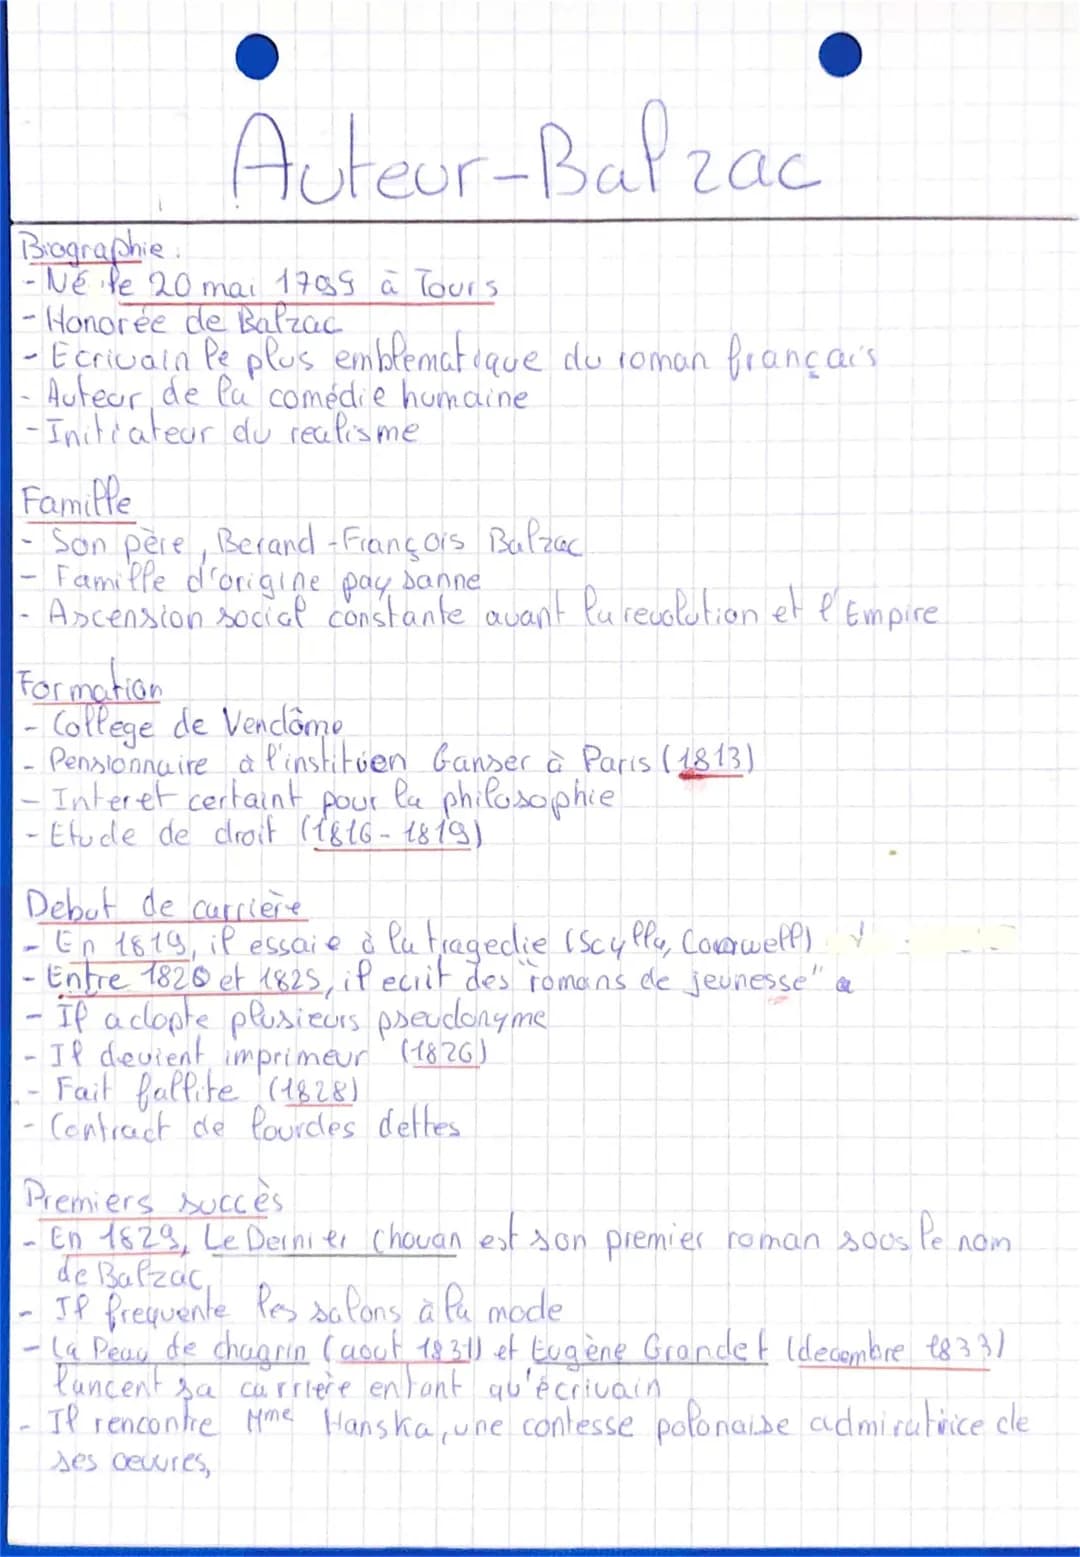 Auteur-Balzac
Biographie :
- Né le 20 mai 1799 à Tours
- Honorée de Balzac
- Ecrivain le plus emblematique du roman français
- Auteur de la comédie humaine
- Initiateur du realisme
Famille
- Son père, Berand-François Balzac
- Famille d'origine paysanne
- Ascension social constante avant la revolution et l'Empire
Formation
- College de Vendôme
- Pensionnaire à l'instituien Ganser à Paris (1813)
- Interet certaint pour la philosophie
- Etude de droit (1816-1819)
Debut de carrière
- En 1819, il essaie à la tragedie (Scylla, Coarwell)
- Entre 1820 et 1825, il ecrit des "romans de jeunesse"
- Il adopte plusieurs pseudonyme
- Il devient imprimeur (1826)
- Fait fallite (1828)
- Contract de lourdes dettes
Premiers succès
- En 1829, Le Dernier Chouan est son premier roman sous le nom
de Balzac,
- Il frequente les salons à la mode
- La Peau de chagrin (aout 1831) et Eugène Grandet (decembre 1833)
lancent sa carrière entant qu'écrivain
- Il rencontre Mme Hanska, une contesse polonaise admiratrice de
ses oeuvres,